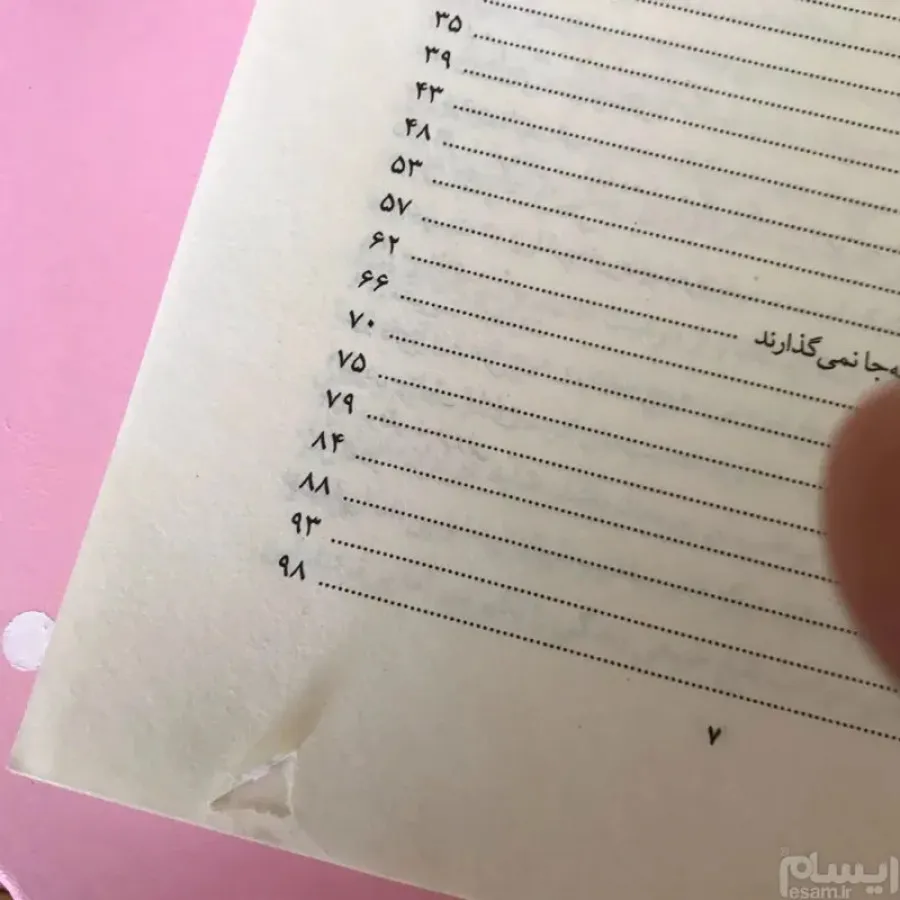 ۳۵
۳۹
۴۳
۴۸
۵۳
۵۷
جا نمی‌گذارند ۶۲
۶۶
۷۰
۷۵
۷۹
۸۴
۸۸
۹۳
۹۸
۷
ایسام
esam.ir